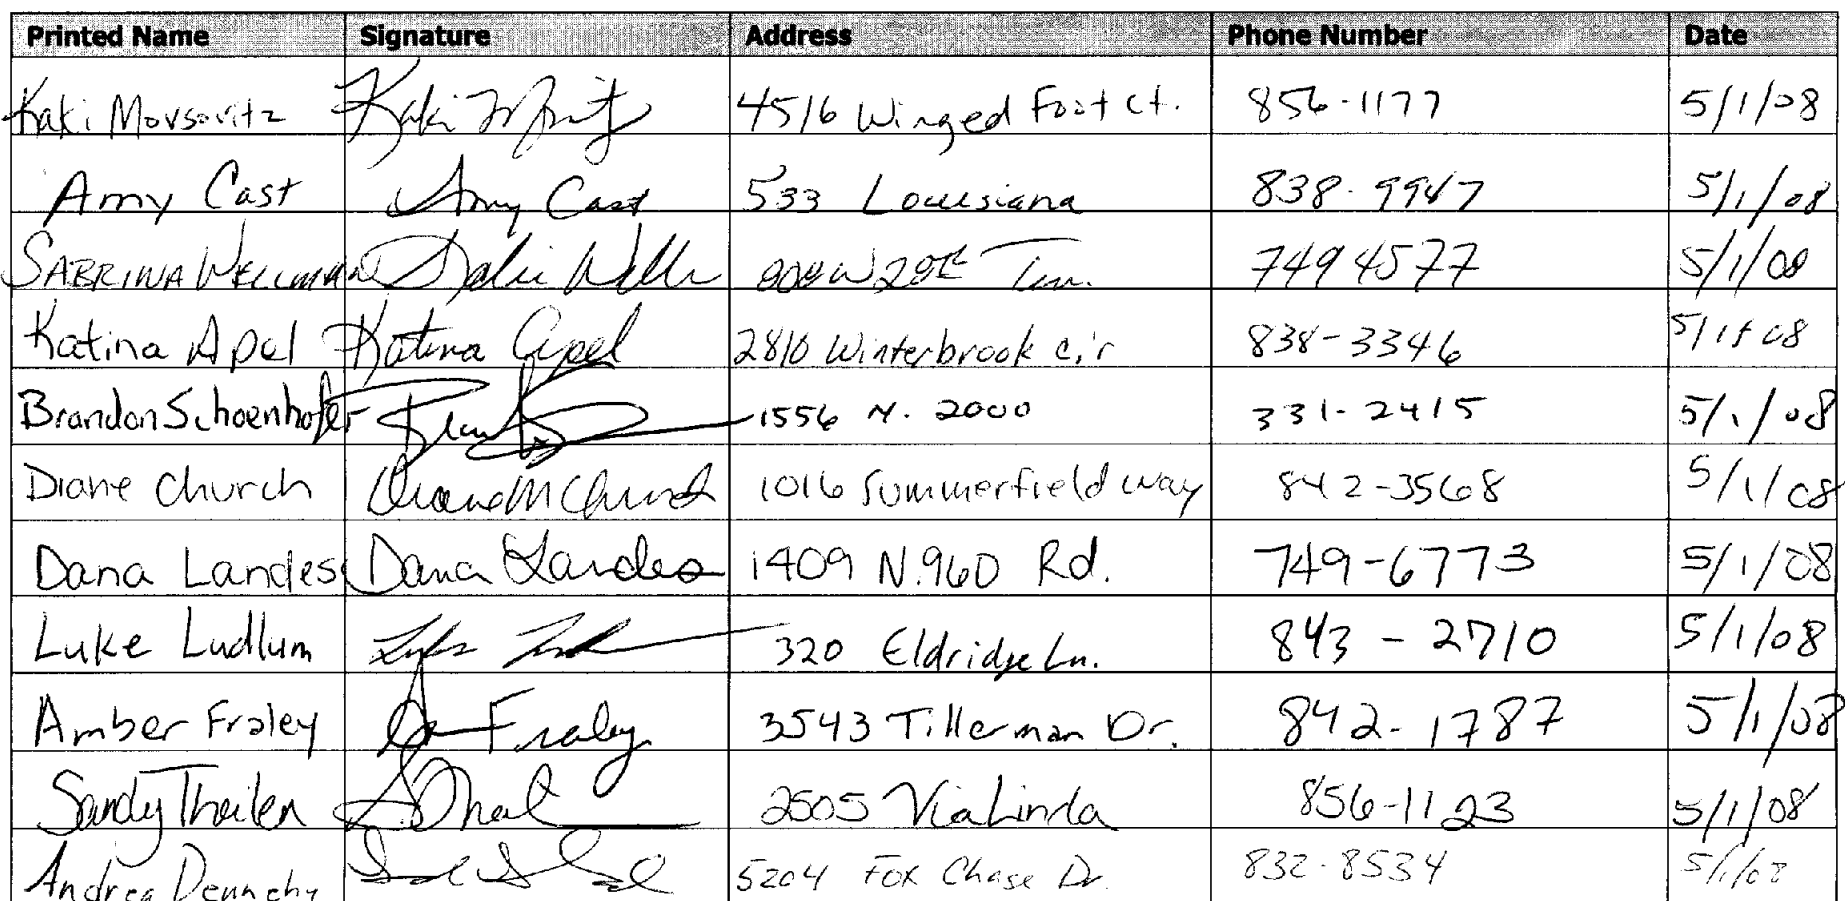 Printed Name Signature Address Phone Number Date
Kaki Morsovitz Kaki 4516 Winged Foot Ct. 856-1177 5/1/08
Amy Cast Amy Cast 533 Louisiana 838-9947 5/1/08
SABRINA WELLMAN 28th Terr. 749 4577 5/1/08
Katina Apel Katina Apel 2810 Winterbrook cir 838-3346 5/1/08
Brandon Schoenhofer 1556 N. 2000 331-2415 5/1/08
Diane Church Diane M Church 1016 Summerfield Way 842-3568 5/1/08
Dana Landes Dana Landes 1409 N.960 Rd. 749-6773 5/1/08
Luke Ludlum 320 Eldridge Ln. 843-2710 5/1/08
Amber Fraley Fraley 3543 Tillerman Dr. 842-1787 5/1/08
Sandy Theilen 2505 Via Linda 856-1123 5/1/08
Andrea Dennehy 5204 Fox Chase Dr. 832-8534 5/1/08